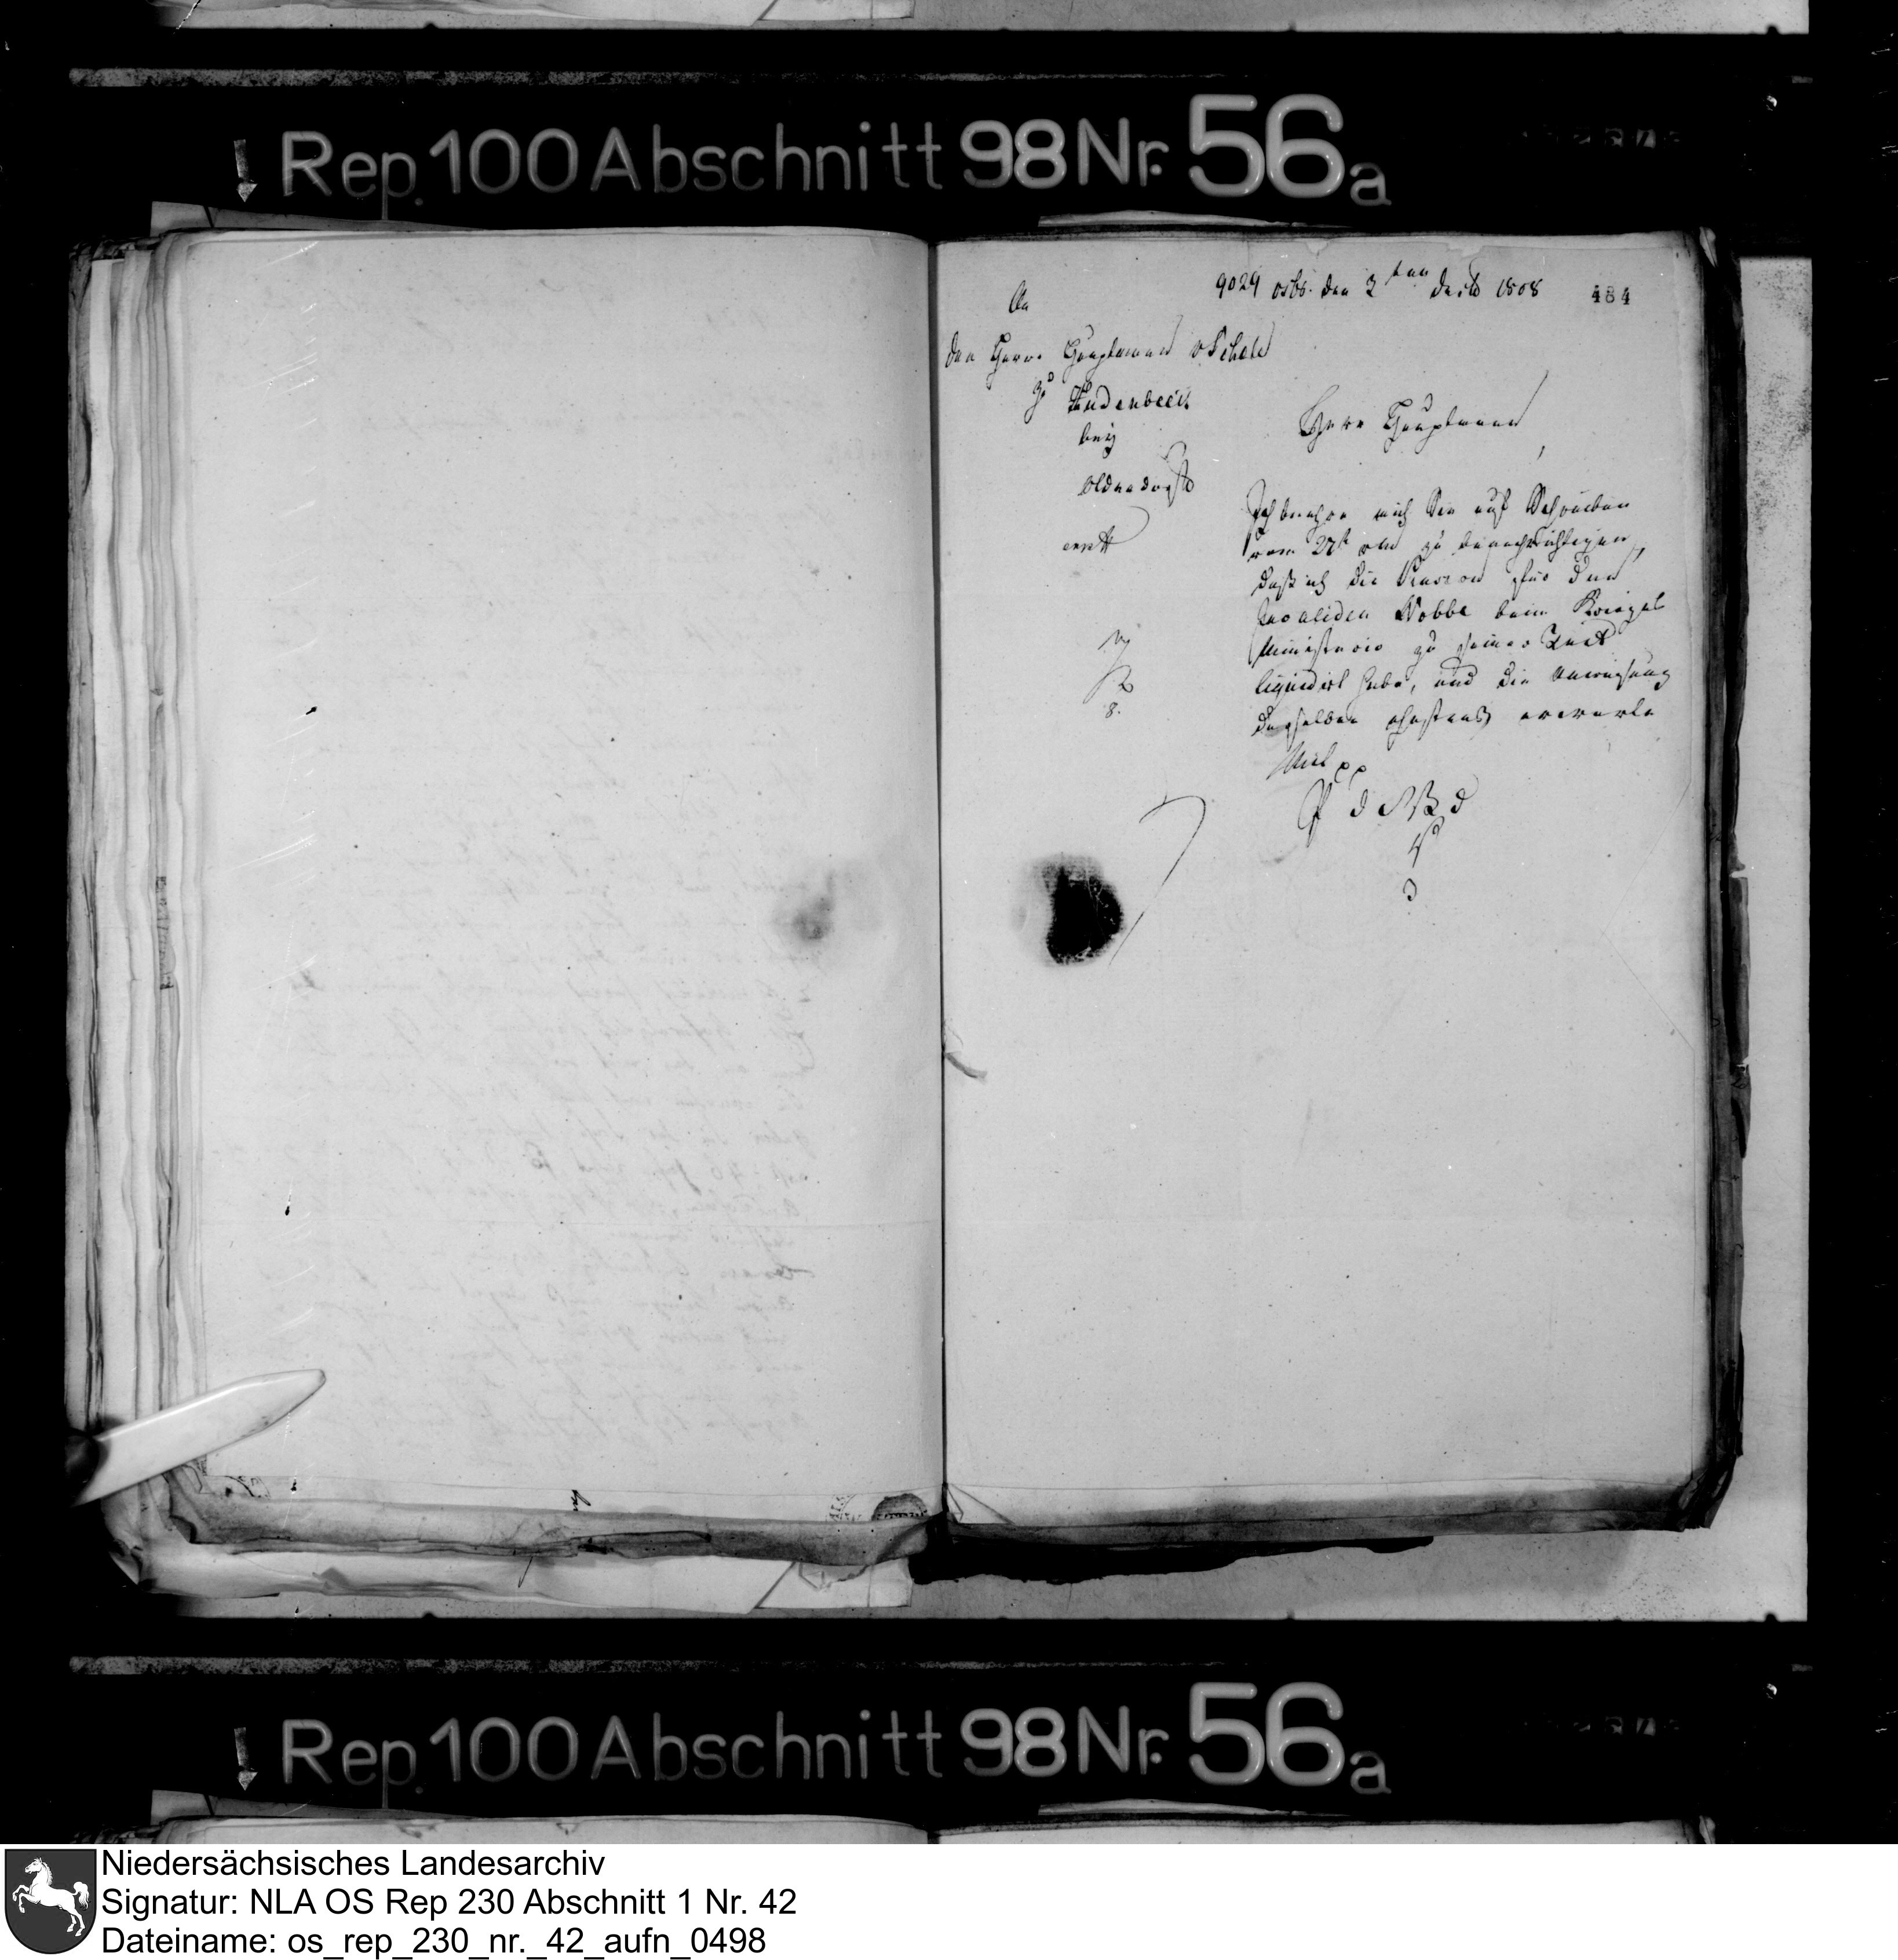 Rep. 100 Abschnitt 98 Nr. 56a
9029 Osbr. den 3ten Decb 1808 484
An
den Herrn Hauptmann v Schele
zu Hudenbeck
bey
Oldendorff
Herr Hauptmann,
Ich beehre mich Sie auf Schreiben
vom 27t zu benachrichtigen,
daß ich die Pension für den
Invaliden Nobbe beim Kriegs
Ministerio zu seiner Zeit
liquidirt habe, und die Anweisung
derselben ehestens erwarte
Mit pp
P d
Rep. 100 Abschnitt 98 Nr. 56a
Niedersächsisches Landesarchiv
Signatur: NLA OS Rep 230 Abschnitt 1 Nr. 42
Dateiname: os_rep_230_nr._42_aufn_0498